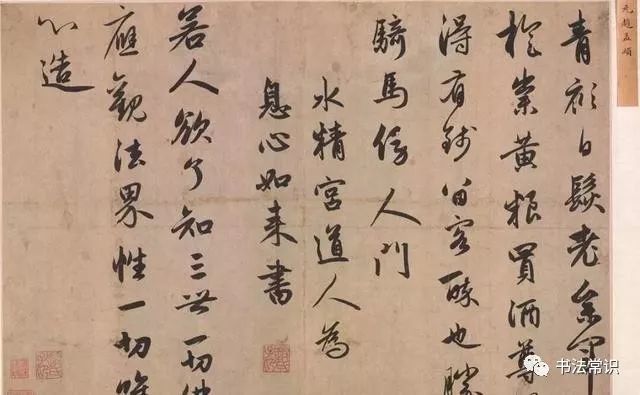 元趙孟頫
青衫白髮老參軍
旋糶黃粮買酒尊
得有錢留客醉也勝
騎馬傍人門
水精宮道人為
息心如来書
若人欲了知三世一切佛
應觀法界性一切唯
心造
书法常识